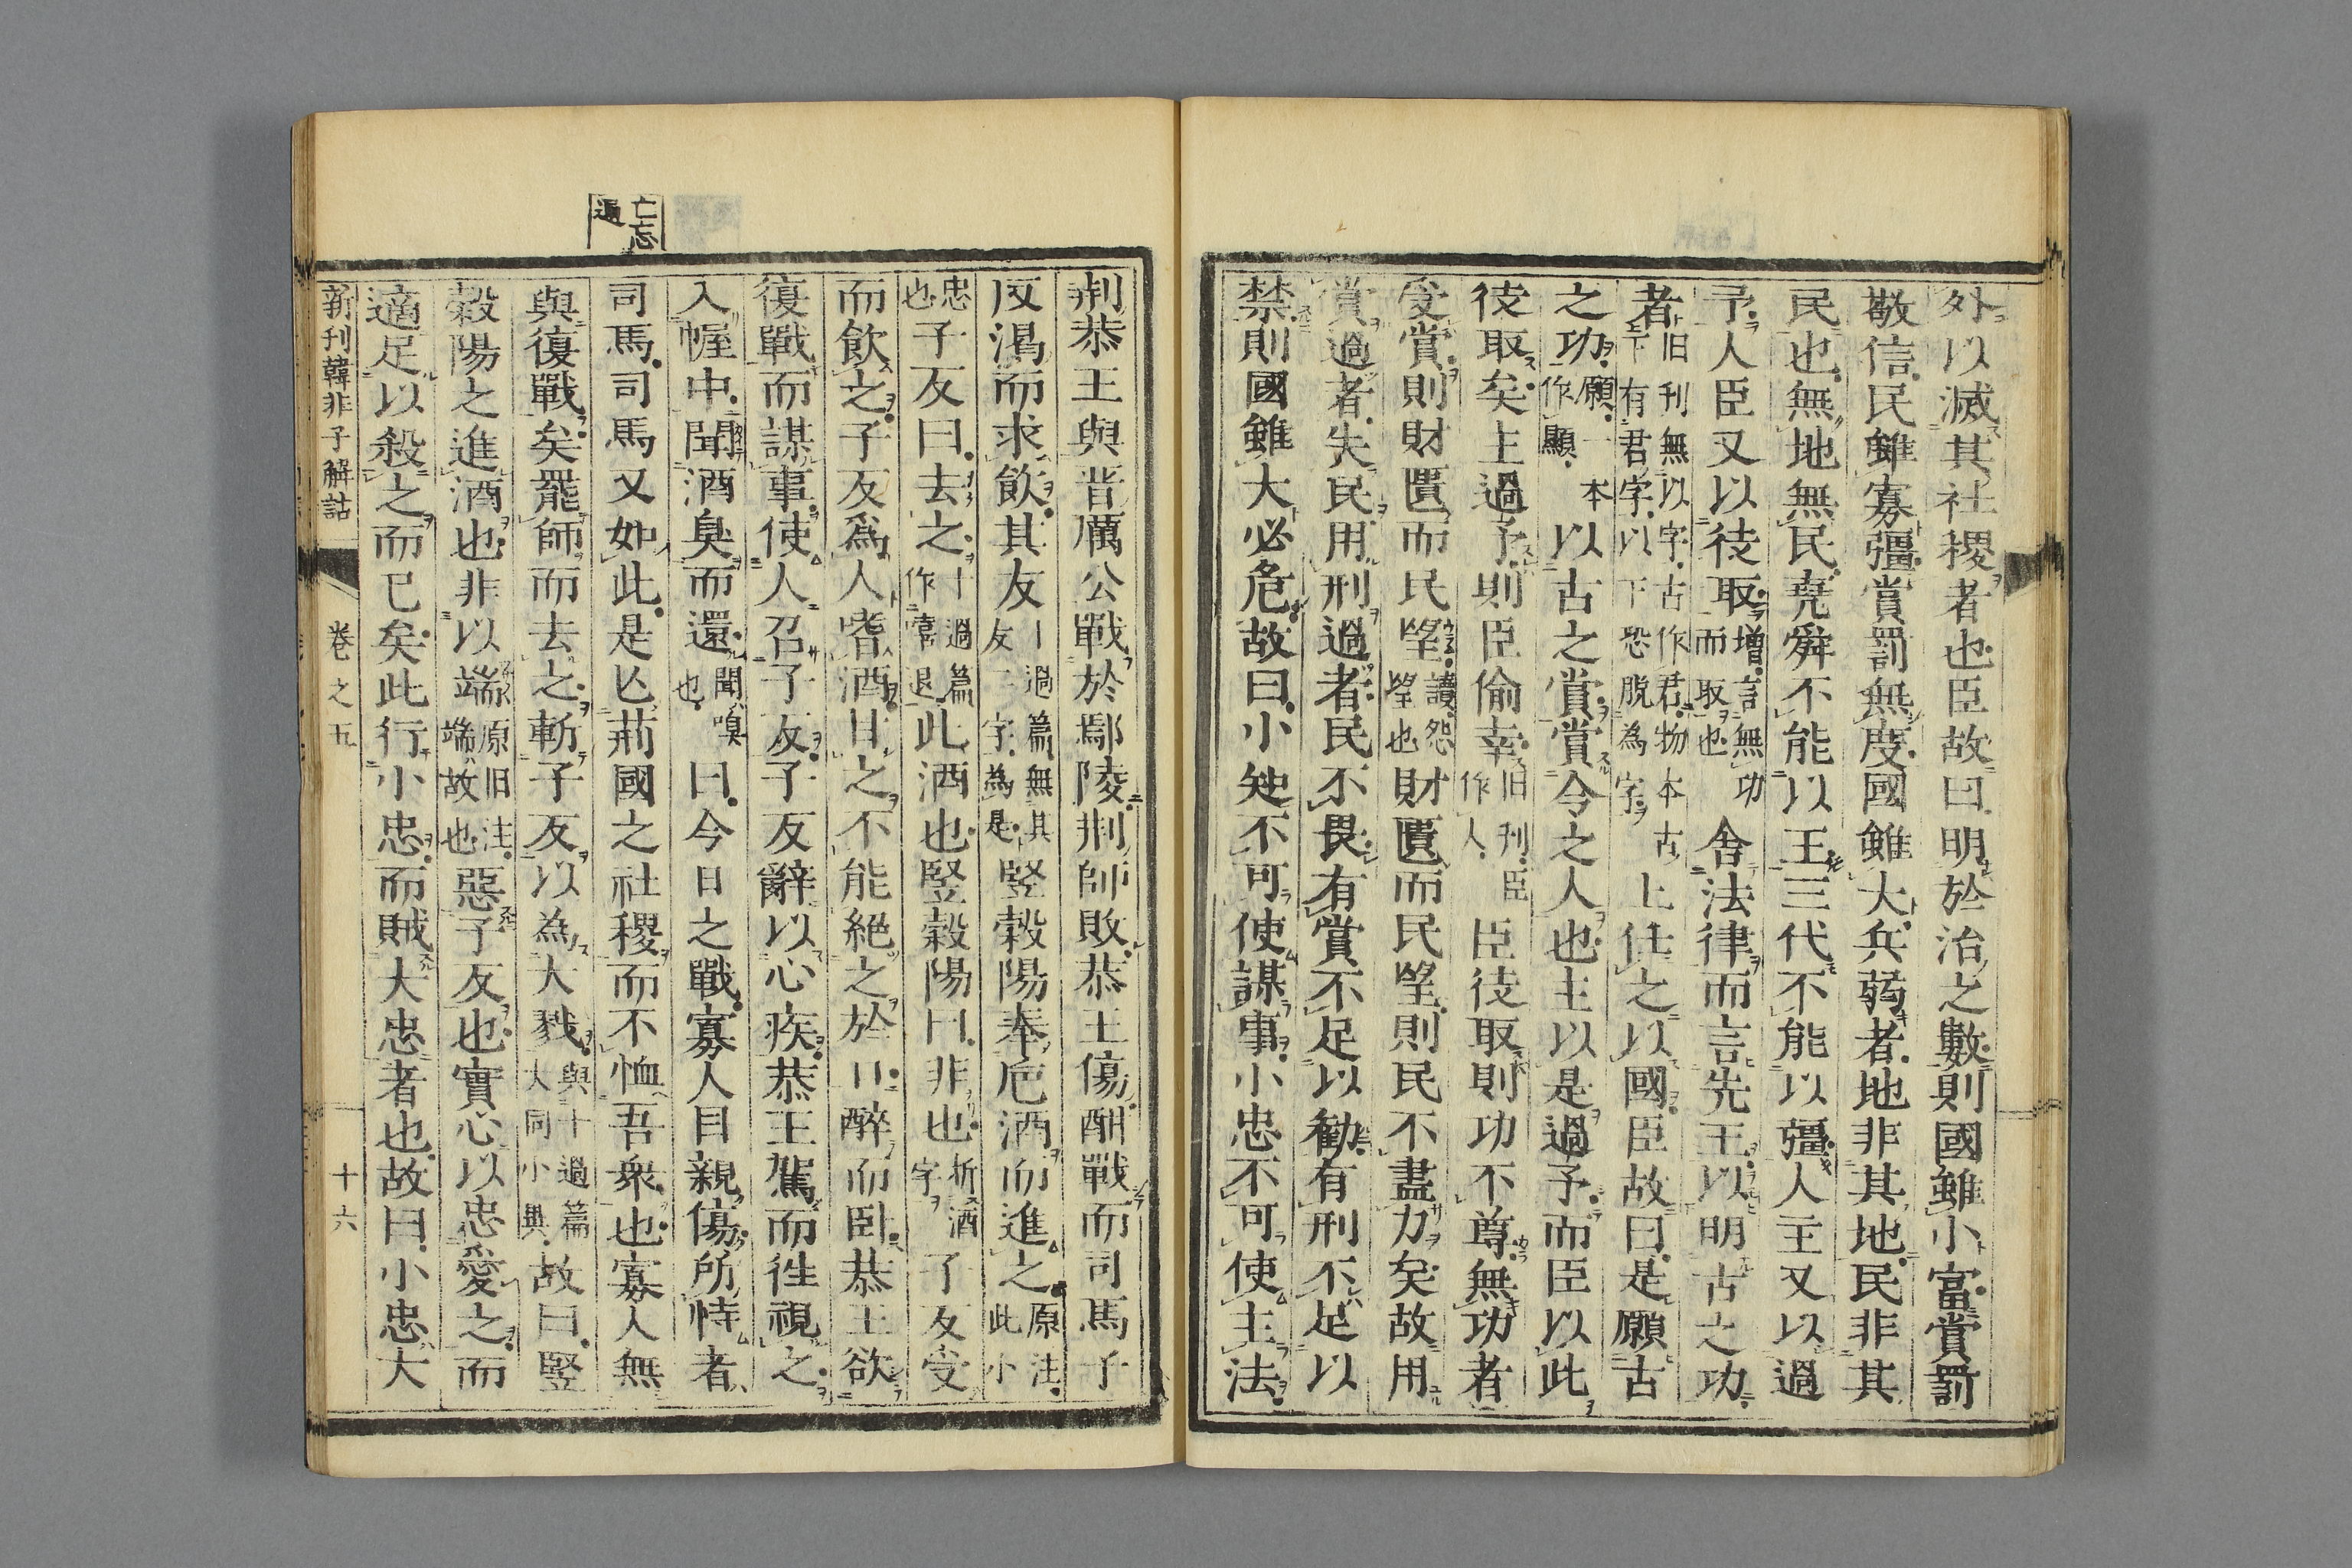 外以滅其社稷者也臣故曰明於治之數則國雖小富賞罰
敬信民雖寡彊賞罰無度國雖大兵弱者地非其地民非其
民也無地無民堯舜不能以王三代不能以彊人主又以過
予人臣又以徒取增言無功而取也舍法律而言先王以明古之功
者旧刊無以字古作君物本古下有君字以下恐脱為字上任之以國臣故曰是願古
之功願一本作顯以古之賞賞今之人也主以是過予而臣以此
徒取矣主過予則臣偷幸旧刊臣作人臣徒取則功不尊無功者
受賞則財匱而民望讀怨望也財匱而民望則民不盡力矣故用
賞過者失民用刑過者民不畏有賞不足以勸有刑不足以
禁則國雖大必危故曰小知不可使謀事小忠不可使主法
荊恭王與晋厲公戰於鄢陵荊師敗恭王傷酣戰而司馬子
反渇而求飲其友十過篇無其友二字為是豎穀陽奉巵酒而進之原注此小
忠也子反曰去之十過篇作嘻退此酒也豎穀陽曰非也折酒字子反受
而飲之子反爲人嗜酒甘之不能絕之於口醉而臥恭王欲
復戰而謀事使人召子反子反辭以心疾恭王駕而往視之
入幄中聞酒臭而還聞嗅也曰今日之戰寡人目親傷所恃者
司馬司馬又如此是亡荊國之社稷而不恤吾衆也寡人無
與復戰矣罷師而去之斬子反以為大戮與十過篇大同小異故曰豎
穀陽之進酒也非以端原旧注端故也惡子反也實心以忠愛之而
適足以殺之而已矣此行小忠而賊大忠者也故曰小忠大
亡忘
過
新刊韓非子解詁 卷之五 十六